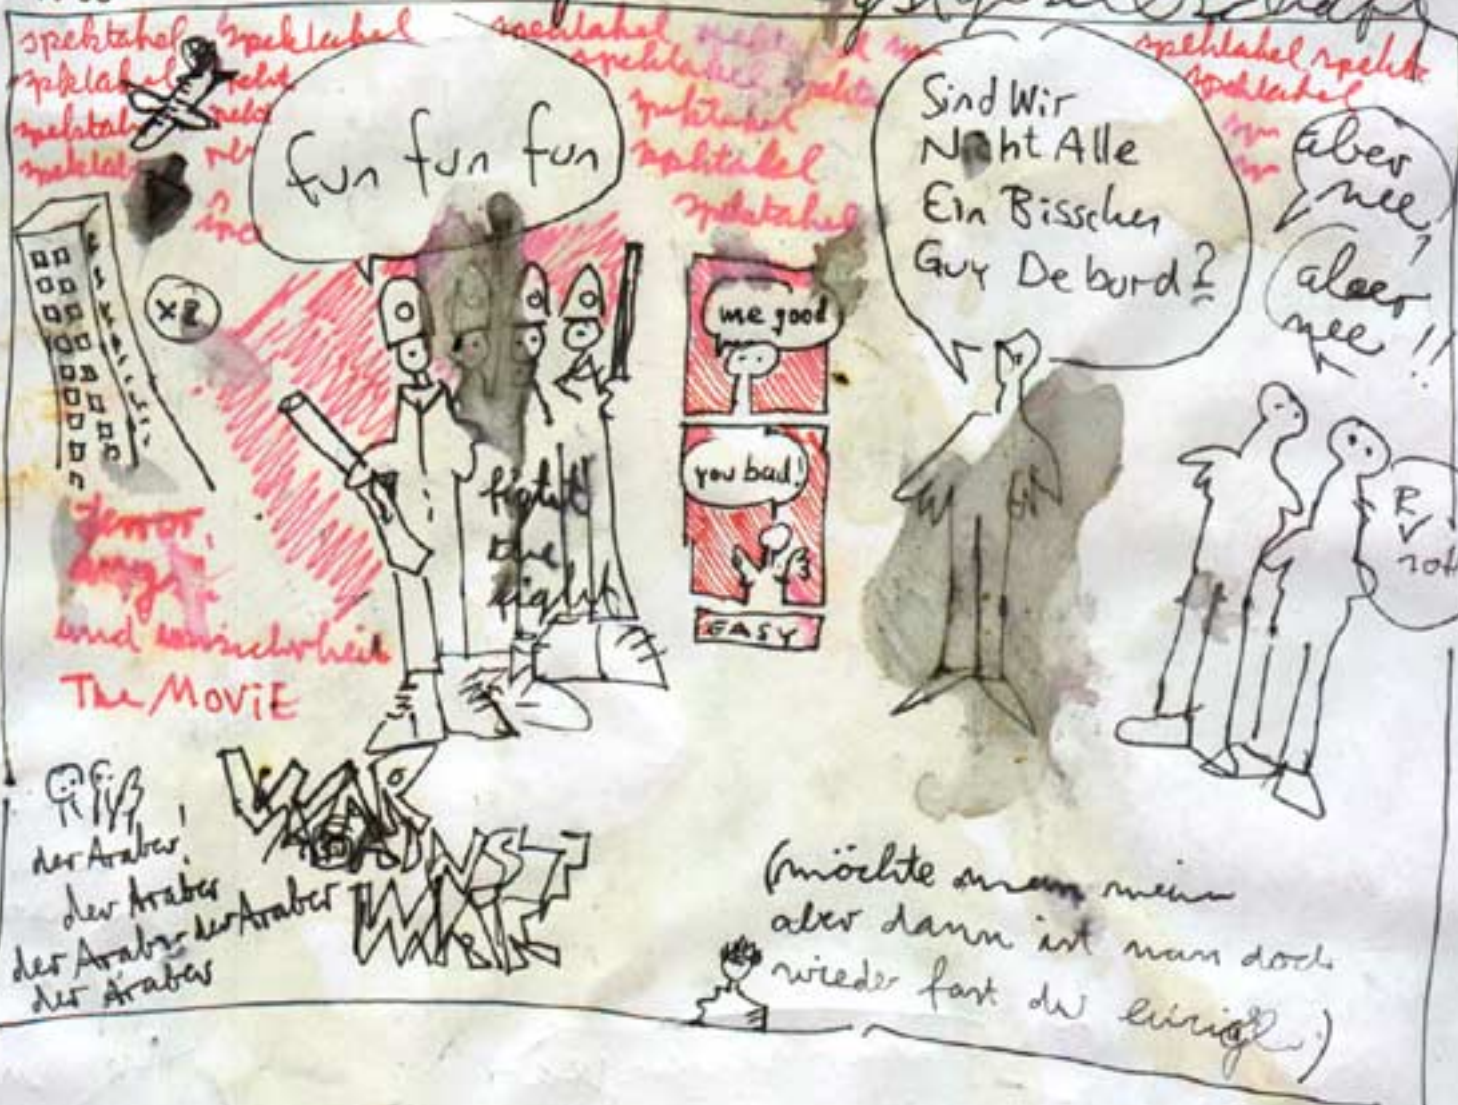 spektakel spektakel spektakel
spektakel
spektakel
spektakel
spektakel
spektakel
spektakel spekt
spektakel
fun fun fun
Sind Wir
Nicht Alle
Ein Bisschen
Guy Debord?
aber
nee
aber
nee!!
x2
me good
you bad!
EASY
fight
the
right
terror,
angst
und unsicherheit
The MoViE
der Araber!
der Araber
der Araber der Araber
der Araber
WAR
AGAINST
WAR
(möchte man mein
aber dann ist man doch
wieder fast der einzige.)